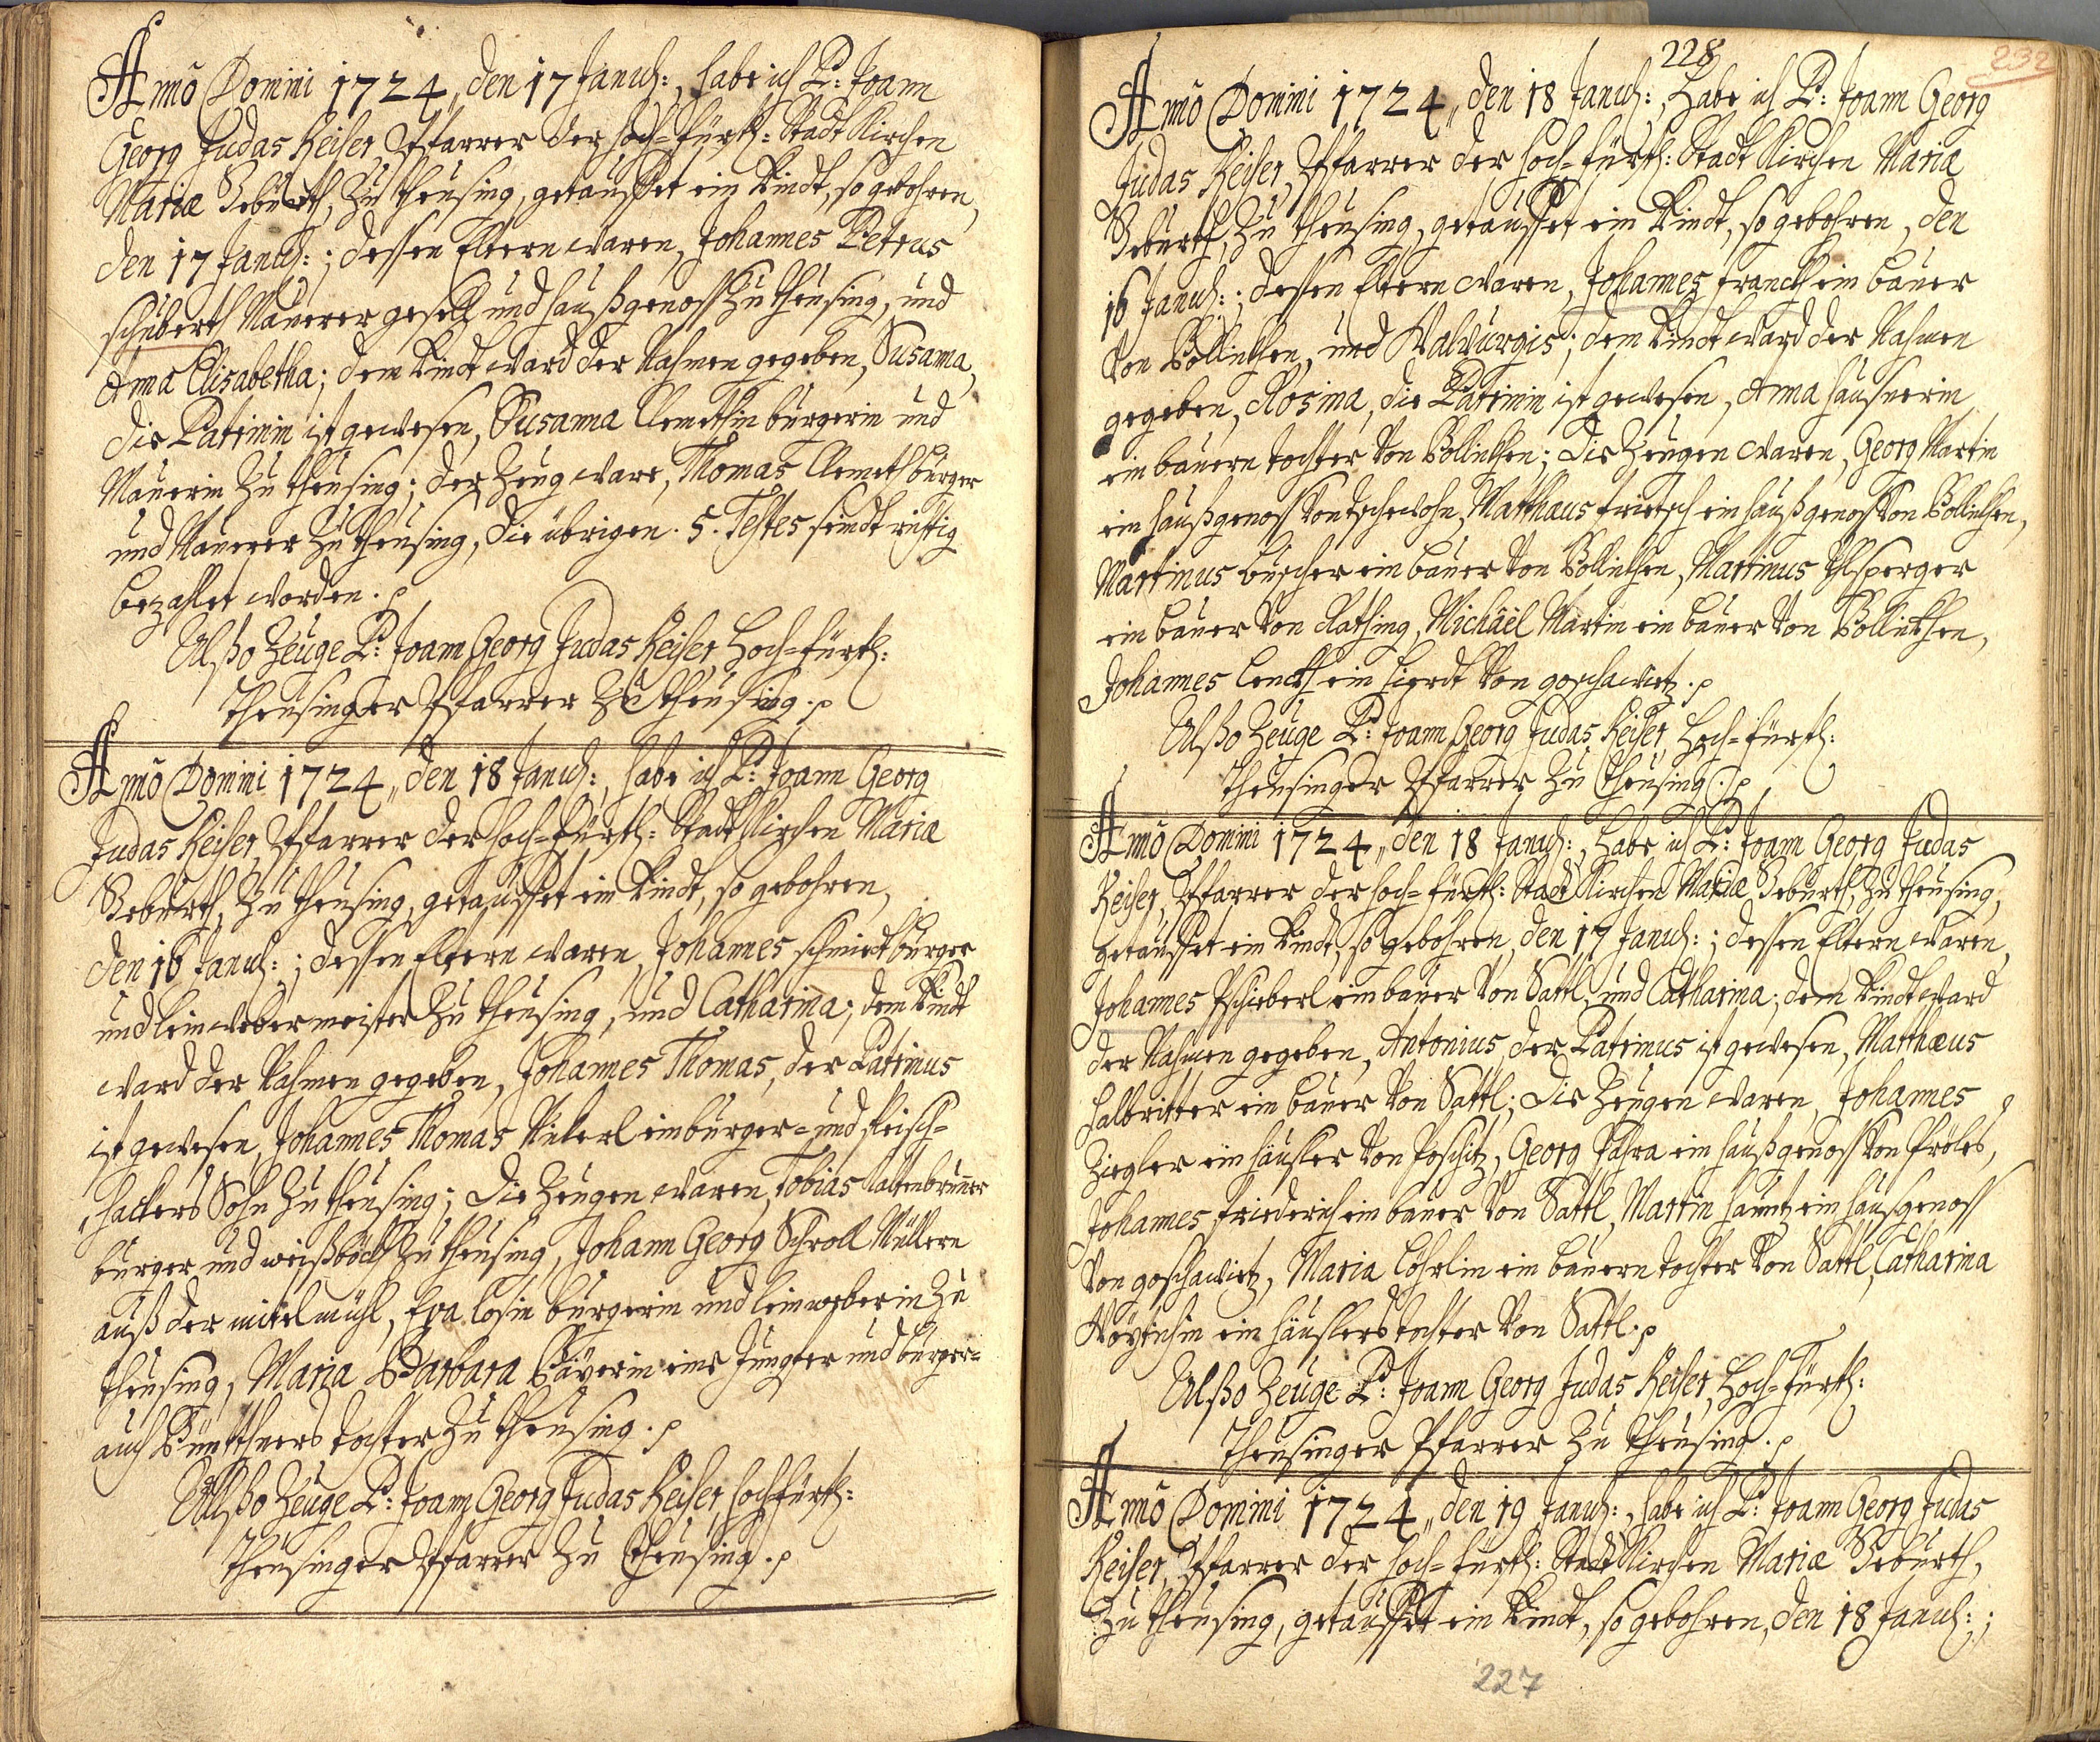 Anno Domini 1724, den 17 Januch:, habe ich P: Joann
Georg Judas Keiser, Pfarrer der hoch=fürth: Stadt Kirchen
Mariæ Gebürth, zu theusing, getauffet ein Kindt, so gebohren,
den 17 Januch:; dessen Eltern waren, Johannes Petrus
schuberth Maurer gesell und haußgenoss zu theusing, und
Anna Elisabetha; dem Kindt ward der Nahmen gegeben, Susanna,
die Patrinin ist gewesen, Susanna Clemethin burgerin und
Maurerin zu theusing; der Zeug ware, Thomas Clemeth burger
und Maurer zu theusing, die übrigen 5. Testes seindt richtig
bezahlet worden.
Alßo Zeuge P: Joann Georg Judas Keiser, Hoch=fürth:
theusinger Pfarrer zu theusing.
Anno Domini 1724, den 18 Januch:, habe ich P: Joann Georg
Judas Keiser, Pfarrer der hoch=fürth: Stadt Kirchen Mariæ
Gebürth, zu theusing, getauffet ein Kindt, so gebohren,
den 16 Januch:; dessen Eltern waren, Johannes schmidt burger
und leinweber meister zu theusing, und Catharina; dem Kindt
ward der Nahmen gegeben, Johannes Thomas, der Patrinus
ist gewesen, Johannes Thomas ein burger= und fleisch=
hackers Sohn zu theusing; die Zeugen waren, Tobias Kaltenbrunner
burger und weißböckh zu theusing, Johann Georg Schroll Müllern
auß der mittelmühl, Eva Losin burgerin und leinweberin zu
theusing, Maria Barbara Bäyerin eine Jungfer und burger=
auch Bünttners tochter zu theusing.
Alßo Zeuge P: Joann Georg Judas Keiser, hochfürth:
theusinger Pfarrer zu theusing.
228
232
Anno Domini 1724, den 18 Januch:, habe ich P: Joann Georg
Judas Keiser, Pfarrer der hoch=fürth: Stadt Kirchen Mariæ
Gebürth, zu theusing, getauffet ein Kindt, so gebohren, den
16 Januch:; dessen Eltern waren, Johannes franckh ein bauer
von Bollinkhen, und Walburgis; dem Kindt ward der Nahmen
gegeben, Rosina, die Patrinin ist gewesen, Anna hausnerin
ein bauern tochter von Bollinkhen; die Zeugen waren, Georg Martin
ein haußgenoss von tschebohn, Matthæus frietsch ein haußgenoss von Bollinkhen,
Martinus büscher ein bauer von Bollinkhen, Martinus Ehlsperger
ein bauer von Rathing, Michäel Martin ein bauer von Bollinkhen,
Johannes Lenckh ein hierdt von goschawitz.
Alßo Zeuge P: Joann Georg Judas Keiser, Hoch=fürth:
theusinger Pfarrer zu theusing.
Anno Domini 1724, den 18 Januch:, habe ich P: Joann Georg Judas
Keiser, Pfarrer der hoch=fürth: Stadt Kirchen Mariæ Gebürth, zu theusing,
getauffet ein Kindt, so gebohren, den 17 Januch:; dessen Eltern waren,
Johannes Pschieberl ein bauer von Sattl, und Catharina; dem Kindt ward
der Nahmen gegeben, Antonius, der Patrinus ist gewesen, Matthæus
halbritter ein bauer von Sattl; die Zeugen waren, Johannes
Ziegler ein häusler von Poschitz, Georg Fahra ein haußgenoss von Pröles,
Johannes friederich ein bauer von Sattl, Martin hauntz ein hausgenoss
von goschawitz, Maria Löhrlin ein bauern tochter von Sattl, Catharina
ein häuslers tochter von Sattl.
Alßo Zeuge P: Joann Georg Judas Keiser, Hoch=fürth:
theusinger Pfarrer zu theusing.
Anno Domini 1724, den 19 Januch:, habe ich P: Joann Georg Judas
Keiser, Pfarrer der hoch=fürth: Stadt Kirchen Mariæ Gebürth,
zu theusing, getauffet ein Kindt, so gebohren, den 18 Januch:;
227